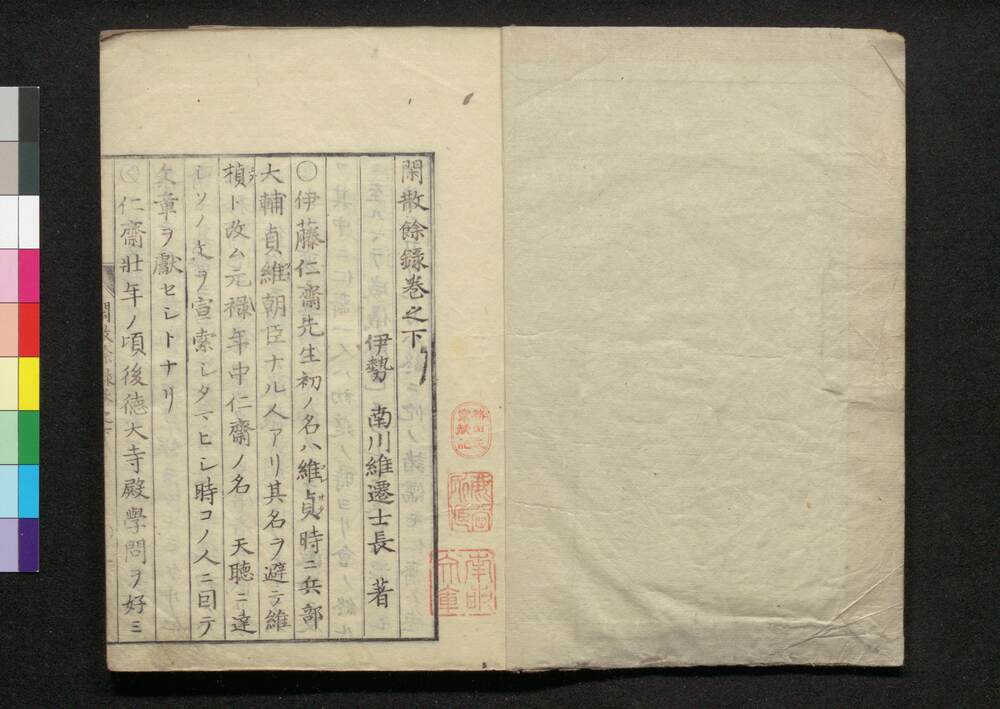 閑散餘録巻之下
伊勢 南川維遷士長 著
〇伊藤仁齋先生初ノ名ハ維貞時ニ兵部
大輔貞維朝臣ナル人アリ其名ヲ避テ維
楨ト改ム元禄年中仁齋ノ名 天聽ニ達
シソノ文ヲ宣索シタマヒシ時コノ人ニ因テ
文章ヲ獻セシトナリ
〇仁齋壯年ノ頃後德大寺殿學問ヲ好ミ
南畊
文庫